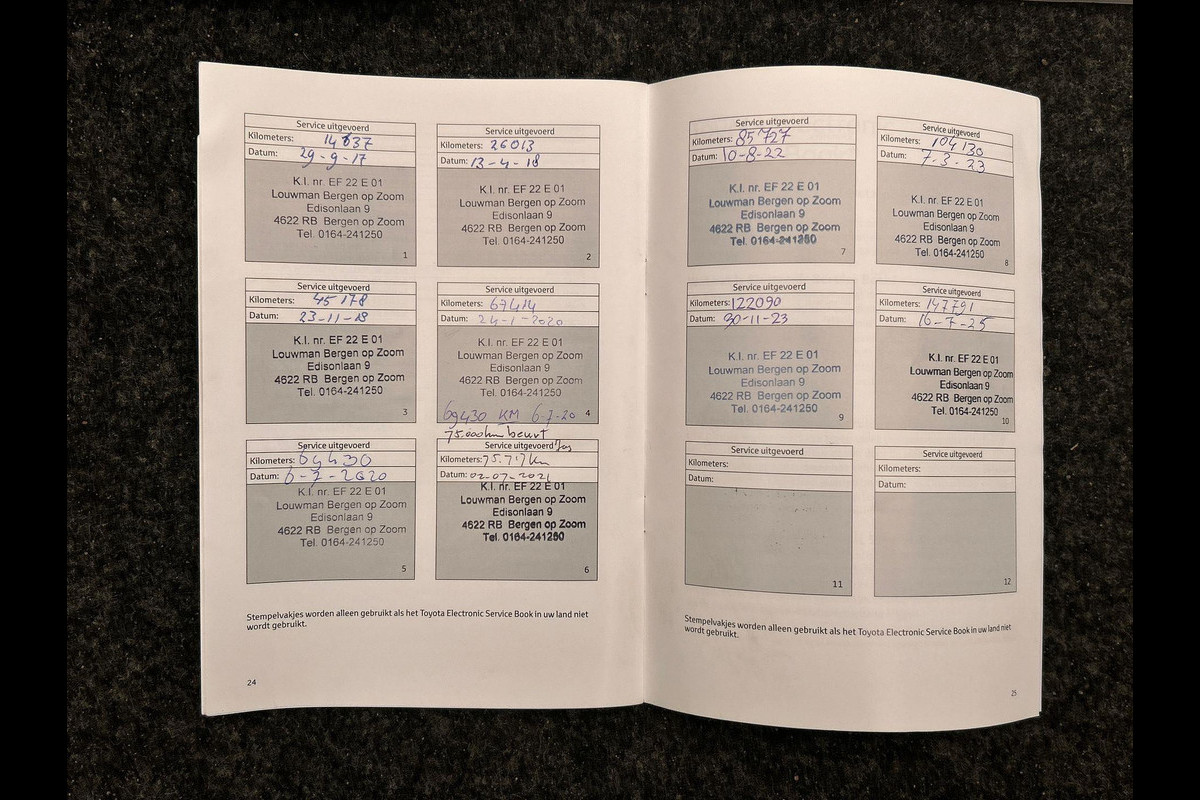 Service uitgevoerd
Kilometers: 14637
Datum: 29-9-17
K.I. nr. EF 22 E 01
Louwman Bergen op Zoom
Edisonlaan 9
4622 RB Bergen op Zoom
Tel. 0164-241250
1
Service uitgevoerd
Kilometers: 26013
Datum: 13-4-18
K.I. nr. EF 22 E 01
Louwman Bergen op Zoom
Edisonlaan 9
4622 RB Bergen op Zoom
Tel. 0164-241250
2
Service uitgevoerd
Kilometers: 45178
Datum: 23-11-18
K.I. nr. EF 22 E 01
Louwman Bergen op Zoom
Edisonlaan 9
4622 RB Bergen op Zoom
Tel. 0164-241250
3
Service uitgevoerd
Kilometers: 67414
Datum: 24-1-2020
K.I. nr. EF 22 E 01
Louwman Bergen op Zoom
Edisonlaan 9
4622 RB Bergen op Zoom
Tel. 0164-241250
69430 KM 6-7-20 4
75.000km beurt
Service uitgevoerd
Kilometers: 69430
Datum: 6-7-2020
K.I. nr. EF 22 E 01
Louwman Bergen op Zoom
Edisonlaan 9
4622 RB Bergen op Zoom
Tel. 0164-241250
5
Service uitgevoerd
Kilometers:
Datum: 02-07-2021
K.I. nr. EF 22 E 01
Louwman Bergen op Zoom
Edisonlaan 9
4622 RB Bergen op Zoom
Tel. 0164-241250
6
Stempelvakjes worden alleen gebruikt als het Toyota Electronic Service Book in uw land niet
wordt gebruikt.
24
Service uitgevoerd
Kilometers: 85727
Datum: 10-8-22
K.I. nr. EF 22 E 01
Louwman Bergen op Zoom
Edisonlaan 9
4622 RB Bergen op Zoom
Tel. 0164-241250
7
Service uitgevoerd
Kilometers: 104130
Datum: 7-3-23
K.I. nr. EF 22 E 01
Louwman Bergen op Zoom
Edisonlaan 9
4622 RB Bergen op Zoom
Tel. 0164-241250
8
Service uitgevoerd
Kilometers: 122090
Datum: 30-11-23
K.I. nr. EF 22 E 01
Louwman Bergen op Zoom
Edisonlaan 9
4622 RB Bergen op Zoom
Tel. 0164-241250
9
Service uitgevoerd
Kilometers: 147791
Datum: 16-7-25
K.I. nr. EF 22 E 01
Louwman Bergen op Zoom
Edisonlaan 9
4622 RB Bergen op Zoom
Tel. 0164-241250
10
Service uitgevoerd
Kilometers:
Datum:
11
Service uitgevoerd
Kilometers:
Datum:
12
Stempelvakjes worden alleen gebruikt als het Toyota Electronic Service Book in uw land niet
wordt gebruikt.
25